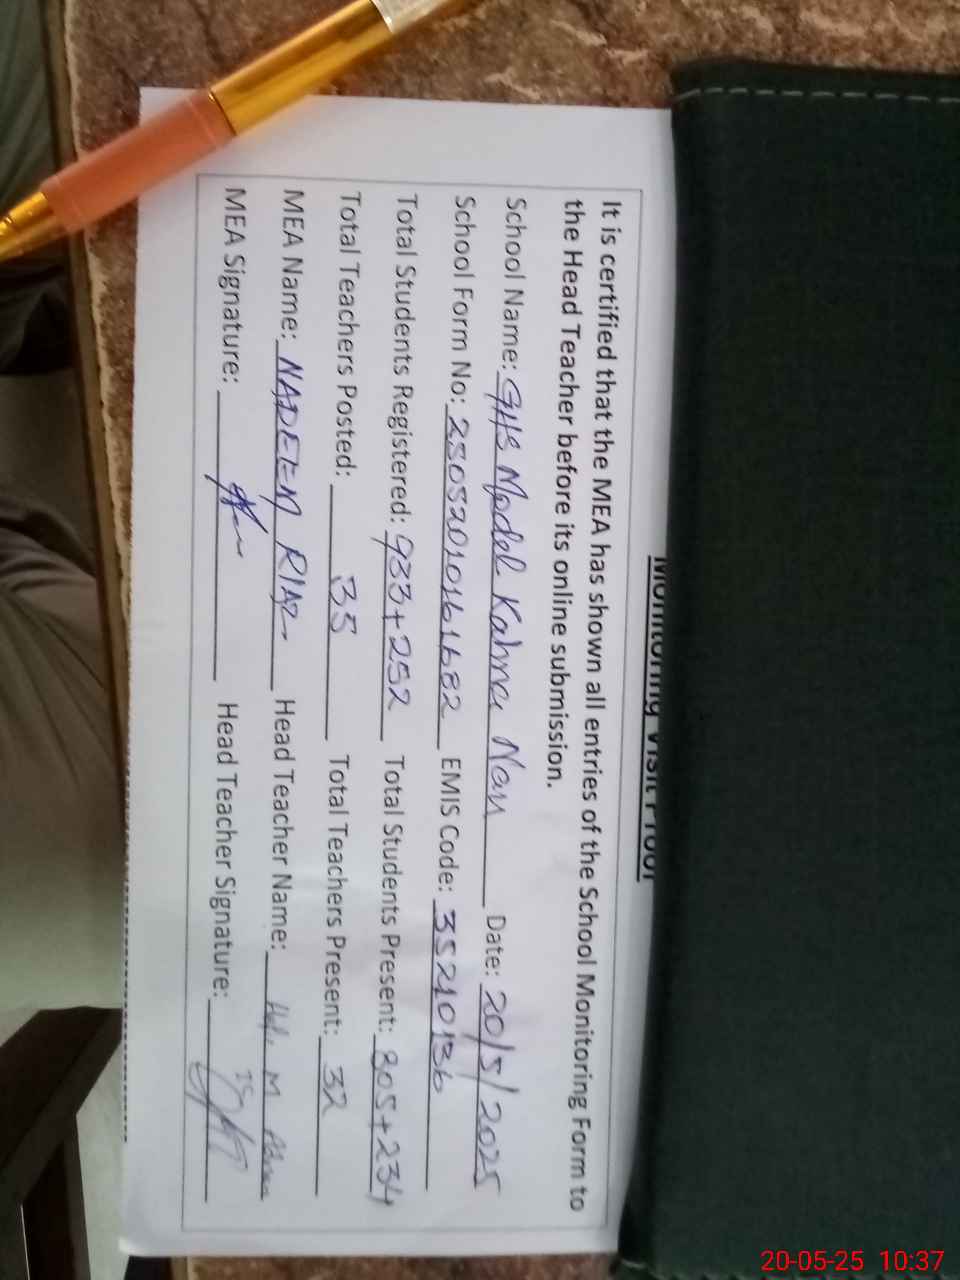 Monitoring Visit Proof
It is certified that the MEA has shown all entries of the School Monitoring Form to
the Head Teacher before its online submission.
School Name: GHS Model Kahna Nau Date: 20/5/2025
School Form No: 2505201061682 EMIS Code: 35210136
Total Students Registered: 933+252 Total Students Present: 805+234
Total Teachers Posted: 35 Total Teachers Present: 32
MEA Name: NADEEM RIAZ Head Teacher Name: M
MEA Signature: Head Teacher Signature:
20-05-25 10:37